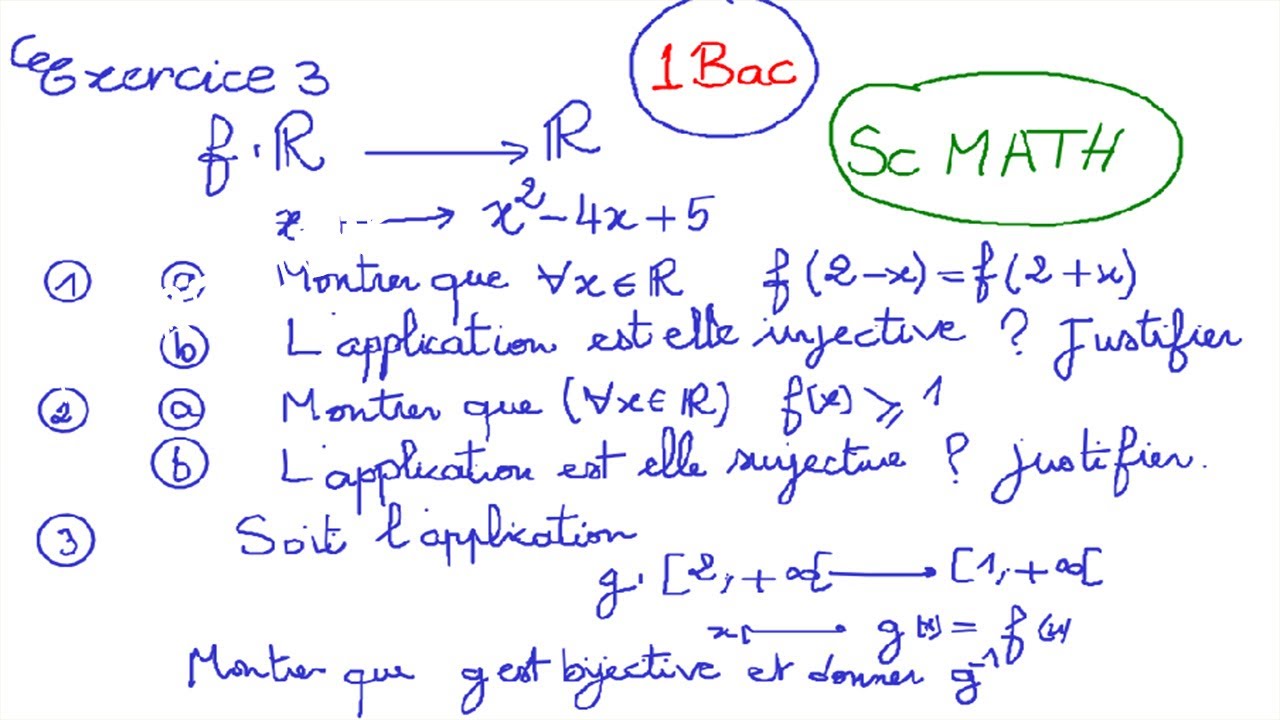 Exercice 3
1Bac
Sc MATH
f : ℝ ⟶ ℝ
x ⟼ x² - 4x + 5
① ⓐ Montrer que ∀x ∈ ℝ f(2-x) = f(2+x)
ⓑ L'application est elle injective ? Justifier
② ⓐ Montrer que (∀x ∈ ℝ) f(x) ⩾ 1
ⓑ L'application est elle surjective ? justifier.
③ Soit l'application
g : [2, +∞[ ⟶ [1, +∞[
x ⟼ g(x) = f(x)
Montrer que g est bijective et donner g⁻¹